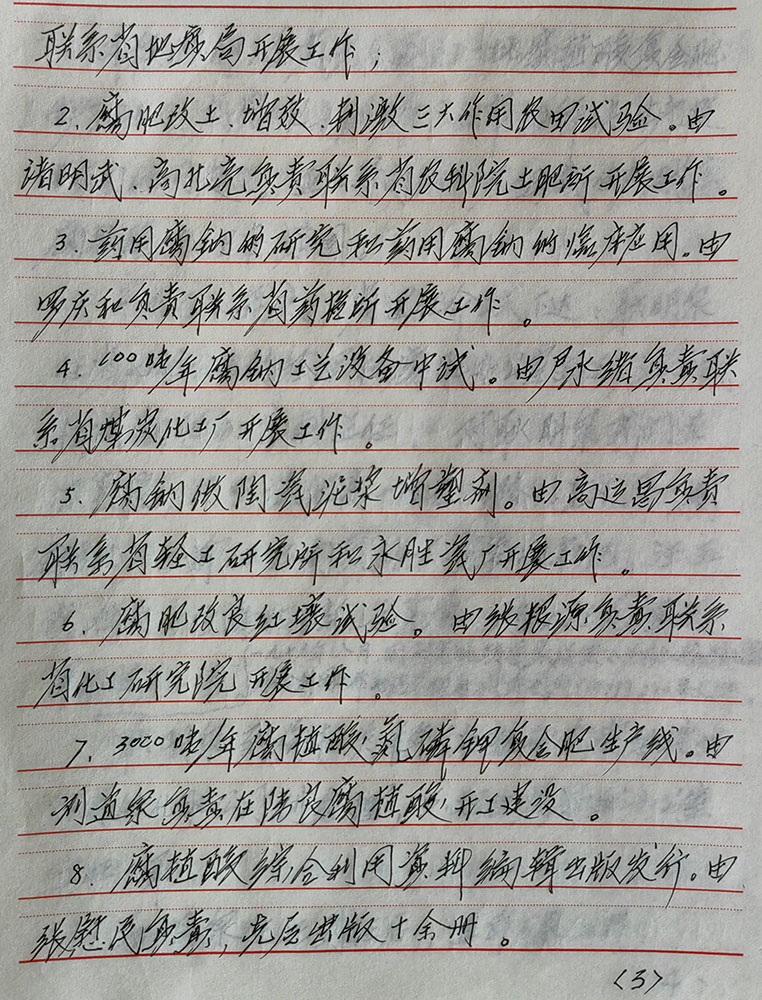 联系省地质局开展工作；
2、腐肥改土、增效、刺激三大作用农田试验。由
诸明武、高北亮负责联系省农科院土肥所开展工作。
3、药用腐钠的研究和药用腐钠的临床应用。由
罗庆和负责联系省药检所开展工作。
4、100吨/年腐钠工艺设备中试。由尹永绪负责联
系省煤炭化工厂开展工作。
5、腐钠做陶瓷泥浆增塑剂。由高运昌负责
联系省轻工研究所和永胜瓷厂开展工作。
6、腐肥改良红壤试验。由张根源负责联系
省化工研究院开展工作。
7、3000吨/年腐植酸氮磷钾复合肥生产线。由
刘道荣负责在陆良腐植酸厂开工建设。
8、腐植酸综合利用资料编辑出版发行。由
张慰民负责，先后出版十余册。
〈3〉